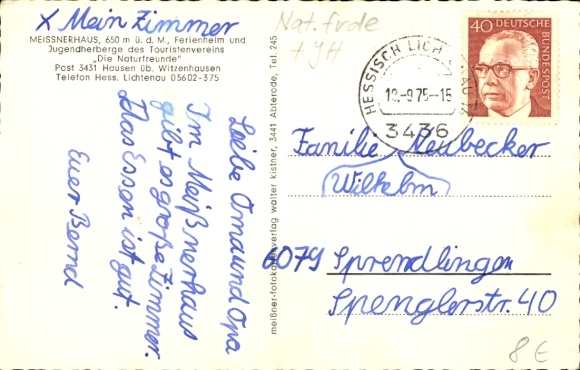 x Mein Zimmer
MEISSNERHAUS, 650 m ü. d. M., Ferienheim und
Jugendherberge des Touristenvereins
„Die Naturfreunde"
Post 3431 Hausen üb. Witzenhausen
Telefon Hess. Lichtenau 05602-375
Liebe Oma und Opa
Im Meißnerhaus
gibt es große Zimmer.
Das Essen ist gut.
Euer Bernd
meißner-fotokartenverlag walter kistner, 3441 Abterode, Tel. 245
Nat.frde
+ JH
HESSISCH LICHTENAU
-9.75-15
3436
40 DEUTSCHE
BUNDESPOST
Familie Neubecker
Wilhelm
6079 Sprendlingen
Spenglerstr. 40
8 €